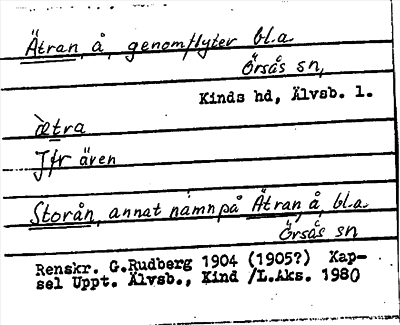 Ätran, å, genomflyter bl.a
Örsås sn,
Kinds hd, Älvsb. l.
æ̀tra
Jfr även
Storån, annat namn på Ätran, å, bl.a.
Örsås sn
Renskr. G.Rudberg 1904 (1905?) Kap-
sel Uppt. Älvsb., Kind /L.Aks. 1980